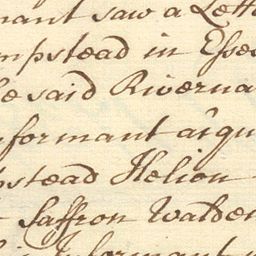 mant saw a Lett
mpstead in Esse
he said Riverna
formant acqu
pstead Helion
Saffron Walden
Informant